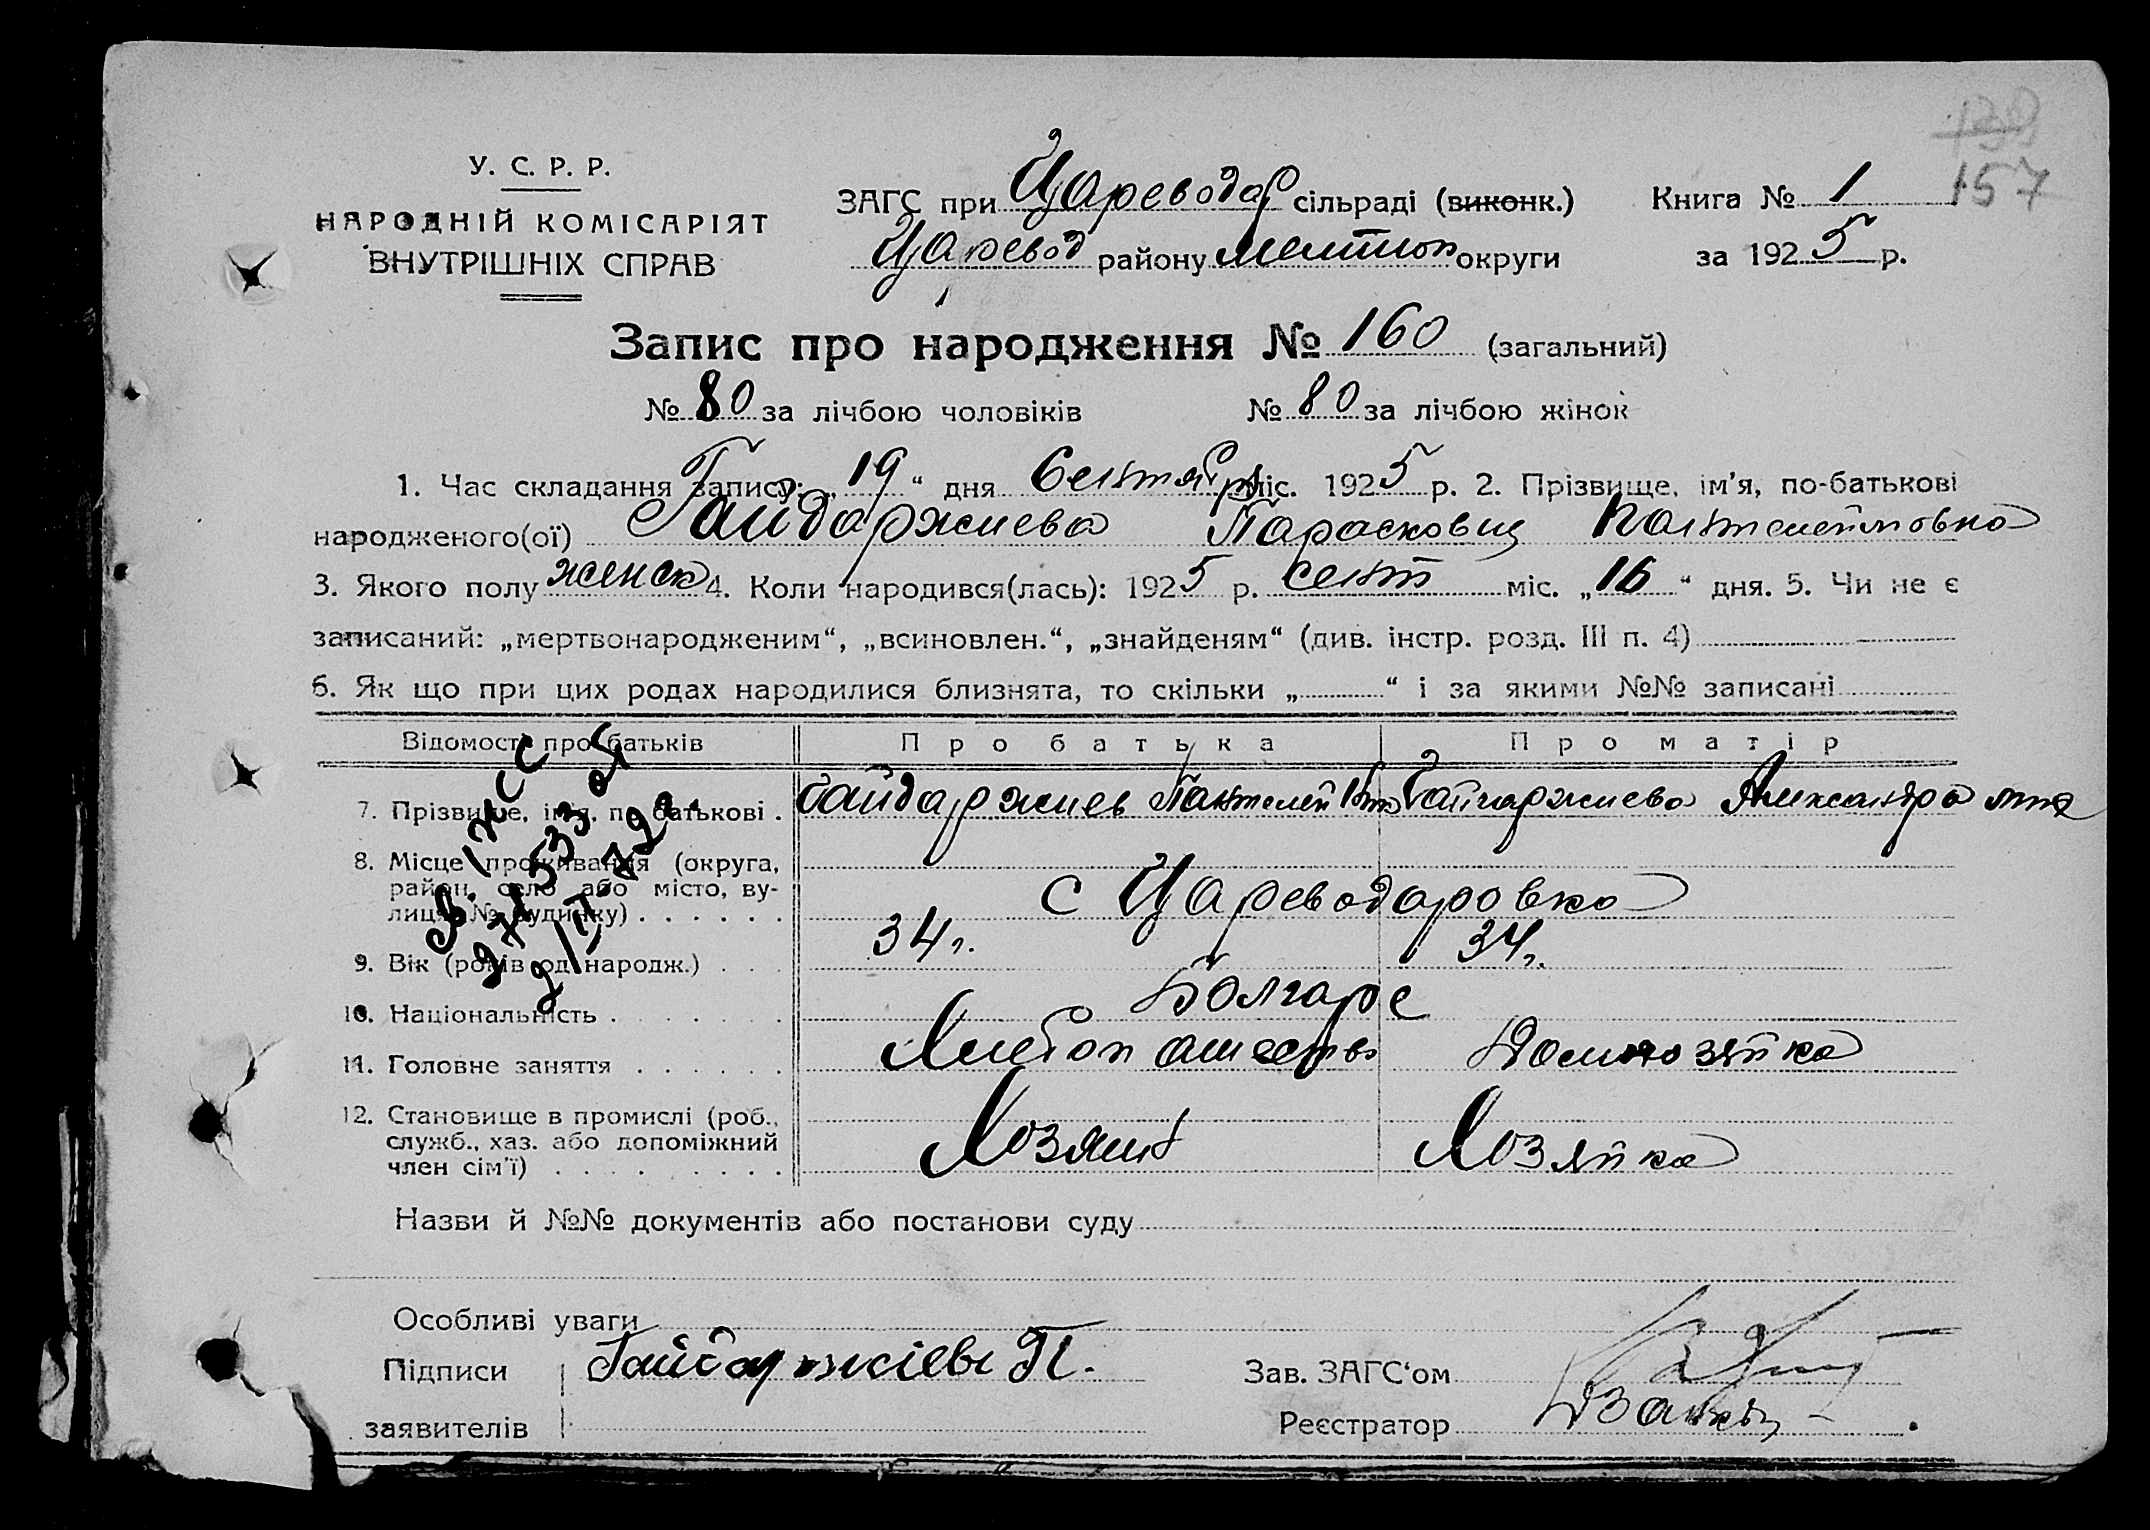 157
У. С. Р. Р.
НАРОДНІЙ КОМІСАРІЯТ
ВНУТРІШНІХ СПРАВ
ЗАГС при Цареводар сільраді (виконк.)
Царевод району Мелитоп округи
Книга № 1
за 1925 р.
Запис про народження № 160 (загальний)
№ 80 за лічбою чоловіків № 80 за лічбою жінок
1. Час складання запису: „19“ дня Сентяб міс. 1925 р. 2. Прізвище, ім'я, по-батькові
народженого(ої) Гайдаржиева Парасковия Пантелеймовна
3. Якого полу женск 4. Коли народився(лась): 1925 р. сент міс. „16“ дня. 5. Чи не є
записаний: „мертвонародженим“, „всиновлен.“, „знайденям“ (див. інстр. розд. III п. 4)
6. Як що при цих родах народилися близнята, то скільки „ “ і за якими №№ записані
Відомості про батьків Про батька Про матір
7. Прізвище, ім'я, по батькові . Гайдаржиев Пантелей Гайдаржиева Александра
8. Місце проживання (округа,
район, село або місто, ву-
лиця, № будинку) . . . . . . с Цареводаровка
9. Вік (років од народж.) . . . 34 г. 34 г.
10. Національність . . . . . Болгаре
11. Головне заняття . . . . . . Хлебопашество Домохозяйка
12. Становище в промислі (роб.,
служб., хаз. або допоміжний
член сім'ї) . . . . . . . . . Хозяин Хозяйка
Назви й №№ документів або постанови суду
Особливі уваги
Підписи Гайдаржіевъ П.
заявителів
Зав. ЗАГС'ом
Реєстратор